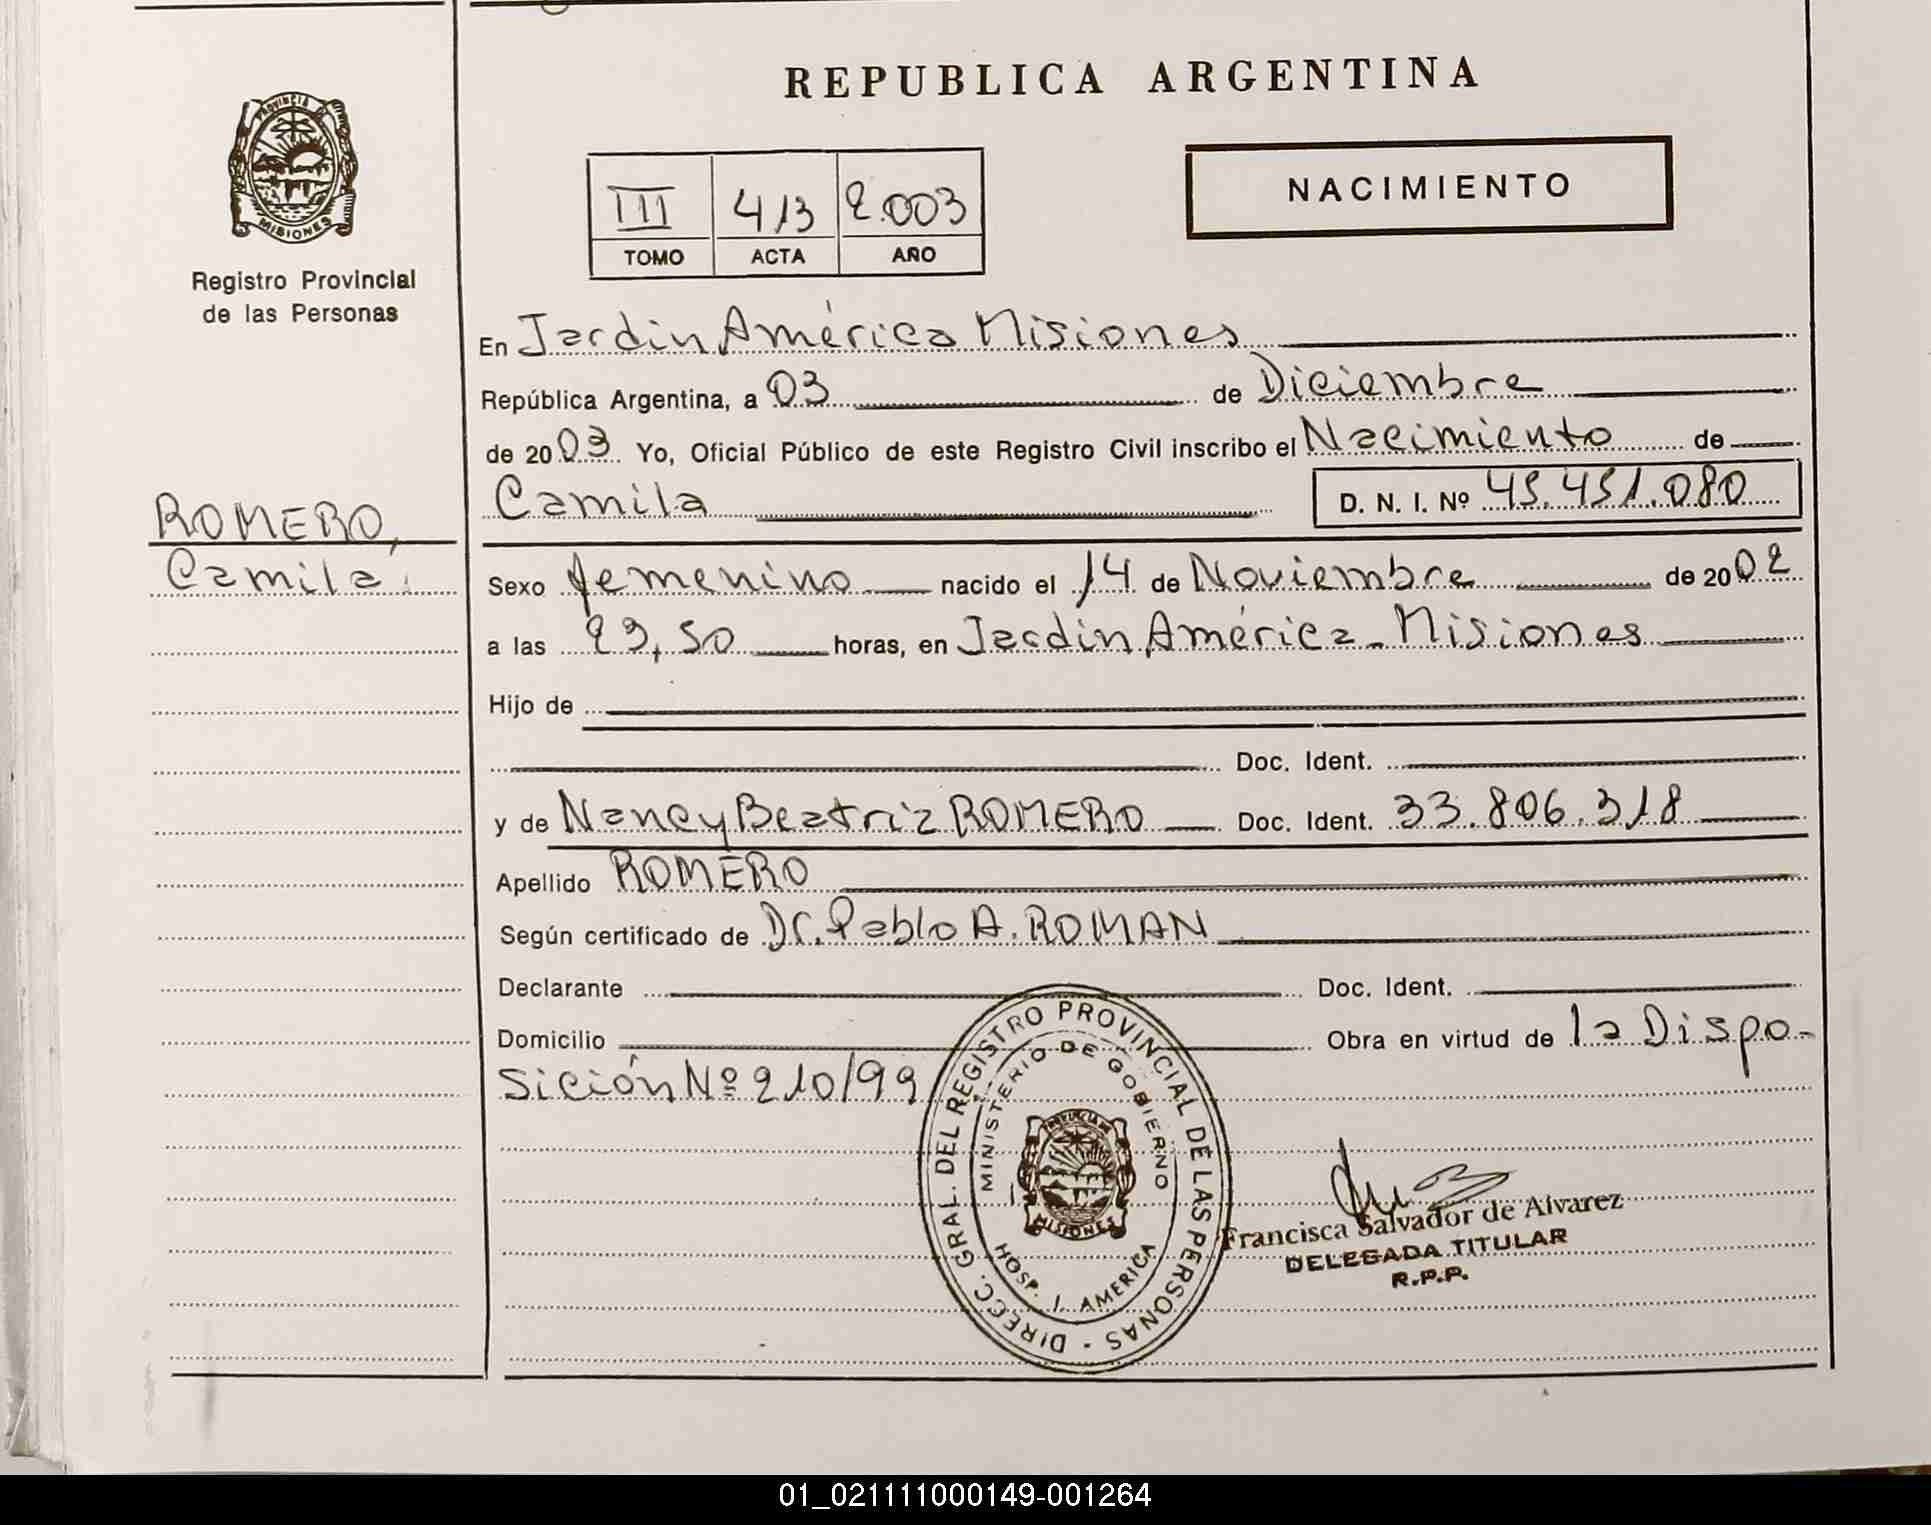 REPUBLICA ARGENTINA
PROVINCIA
MISIONES
Registro Provincial
de las Personas
III 413 2.003
TOMO ACTA AÑO
NACIMIENTO
En Jardin América Misiones
República Argentina, a 03 de Diciembre
de 2003 Yo, Oficial Público de este Registro Civil inscribo el Nacimiento de
Camila D. N. I. Nº 45.451.080
ROMERO,
Camila.
Sexo femenino nacido el 14 de Noviembre de 2002
a las 23,50 horas, en Jardin América - Misiones
Hijo de
Doc. Ident.
y de Nancy Beatriz ROMERO Doc. Ident. 33.806.318
Apellido ROMERO
Según certificado de Dr. Pablo A. ROMAN
Declarante Doc. Ident.
Domicilio Obra en virtud de la Dispo-
sición Nº 210/99
DIRECC. GRAL. DEL REGISTRO PROVINCIAL DE LAS PERSONAS -
MINISTERIO DE GOBIERNO
PROVINCIA
MISIONES
HOSP. J. AMERICA
Francisca Salvador de Alvarez
DELEGADA TITULAR
R.P.P.
01_021111000149-001264